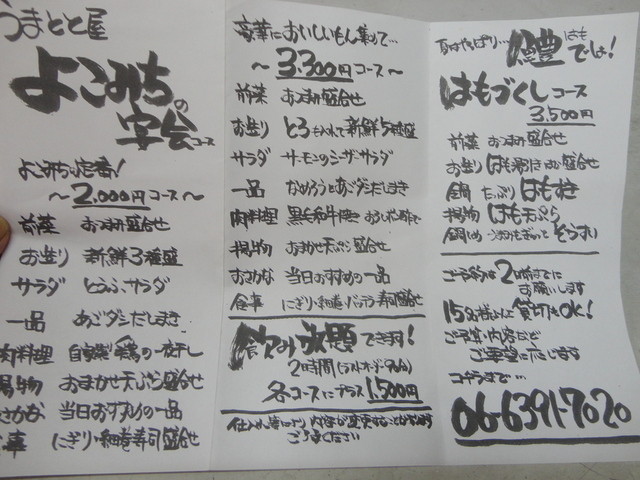 うまとと屋
よこみちの
宴会コース
よこみち定番!
～2,000円コース～
前菜 おつまみ盛合せ
お造り 新鮮3種盛
サラダ とうふサラダ
一品 あごダシだしまき
肉料理 自家製鶏の一夜干し
揚物 おまかせ天ぷら盛合せ
おさかな 当日おすすめの一品
食事 にぎり・和巻寿司盛合せ
豪華においしいもん集めて…
～3,300円コース～
前菜 おつまみ盛合せ
お造り とろも入れて新鮮5種盛
サラダ サーモンのシーザーサラダ
一品 なめろうとあごダシだしまき
肉料理 黒毛和牛
揚物 おまかせ天ぷら盛合せ
おさかな 当日おすすめの一品
食事 にぎり・和巻・バッテラ寿司盛合せ
飲み放題できます!
2時間(ラストオーダー90分)
各コースにプラス1,500円
仕入れ等により内容が変更することがあります
ご了承ください
夏はやっぱり…鱧はもでしょ!
はもづくしコース
3,500円
前菜 おつまみ盛合せ
お造り はも湯引き
鍋 たっぷりはも
揚物 はも天ぷら
鍋〆 ぞうすい
ご予約は2日前までに
お願いします
15名様より貸切もOK!
ご予算・内容など
ご要望に応じます
コチラまで…
06-6391-7020